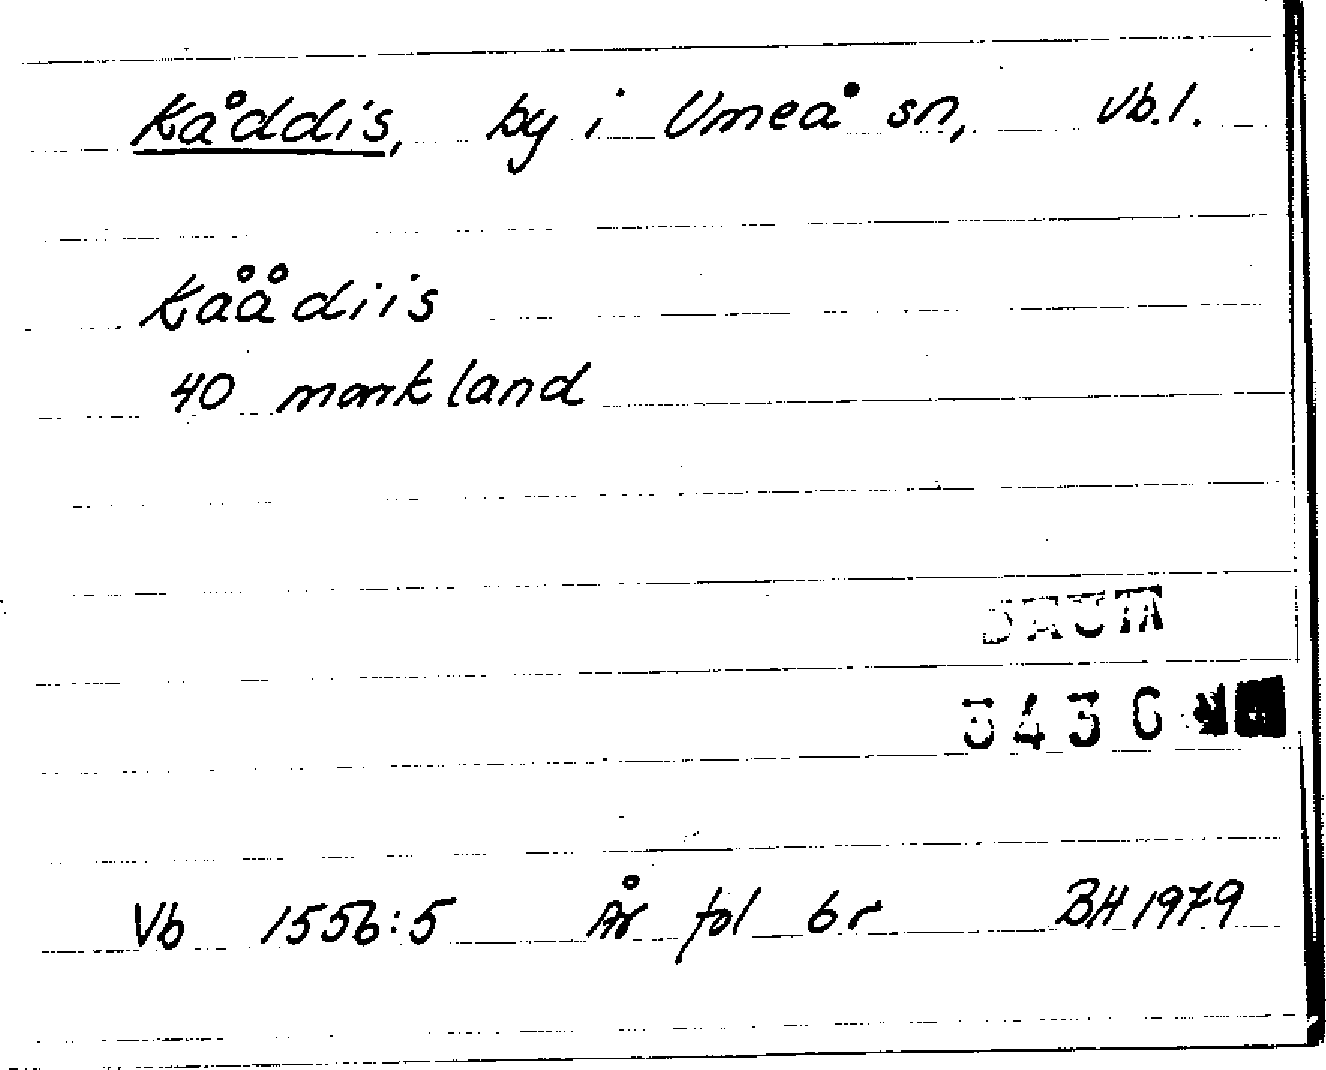 Kåddis, by i Umeå sn, Vb.l.
Kåådiis
40 markland
DAUM
3436
Vb 1556:5 År fol 6r BH 1979